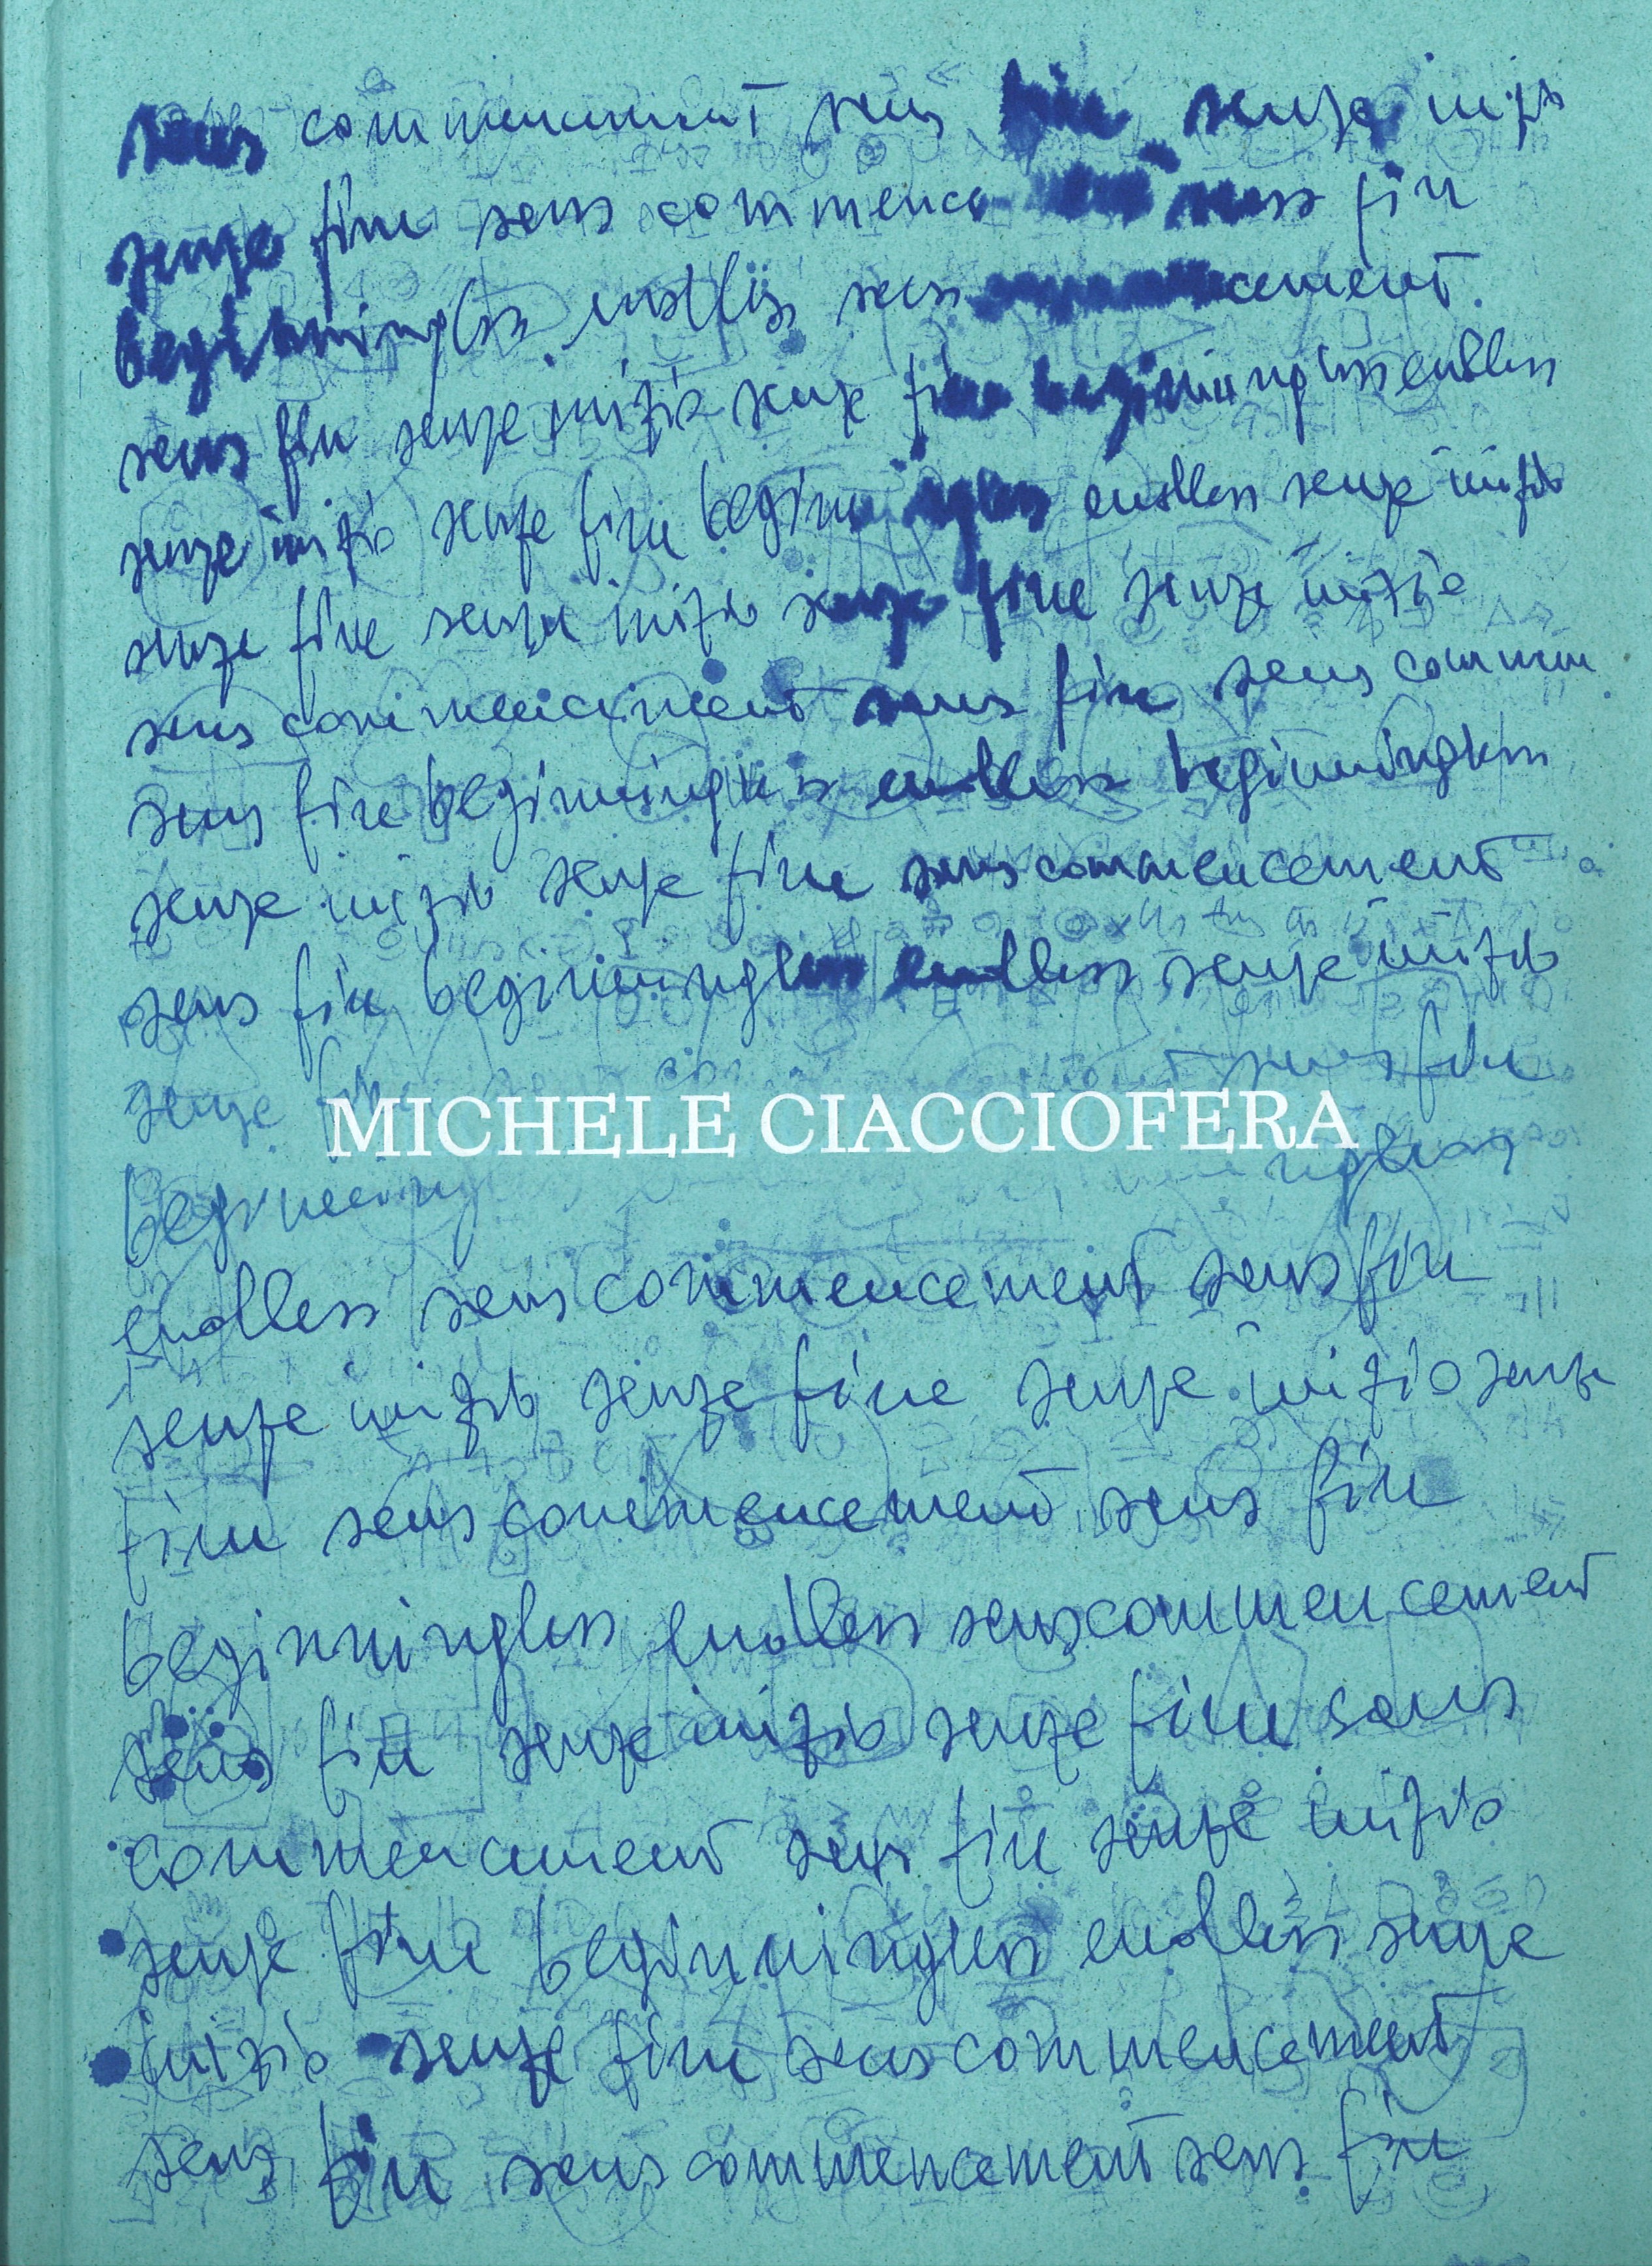 sans commencement sans fin senza inizio
senza fine sans commence sans fin
beginningless endless sans commencement
sans fin senza inizio senza fine beginningless endless
senza inizio senza fine beginningless endless senza inizio
senza fine senza inizio senza fine senza inizio
sans commencement sans fin sans commen
sans fin beginningless endless beginningless
senza inizio senza fine sans commencement
sans fin beginningless endless senza inizio
senza sans fin
MICHELE CIACCIOFERA
endless sans commencement sans fin
senza inizio senza fine senza inizio senza
fine sans commencement sans fin
beginningless endless sans commencement
sans fin senza inizio senza fine sans
commencement sans fin senza inizio
senza fine beginningless endless senza
inizio senza fine sans commencement
sans fin sans commencement sans fin